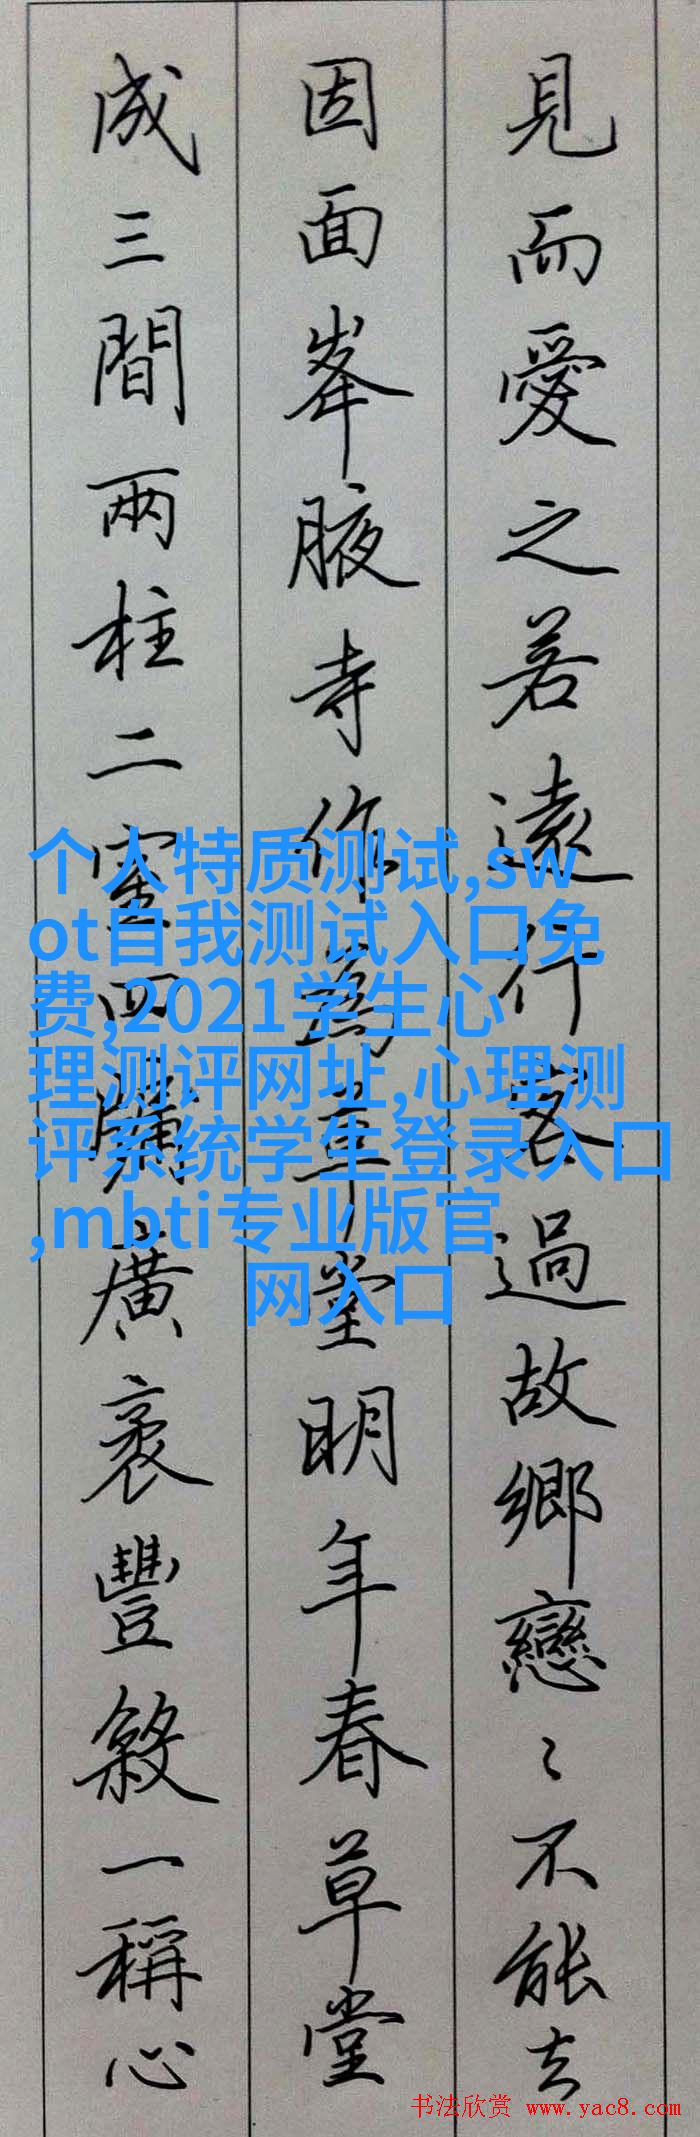 見而愛之若遠行客過故鄉戀〻不能去
因面峯腋寺作為草堂明年春草堂
成三間兩柱二室四牖廣袤豐殺一稱心
个人特质测试,sw
ot自我测试入口免
费,2021学生心
理测评网址,心理测
评系统学生登录入口
,mbti专业版官
网入口
书法欣赏 www.yac8.com